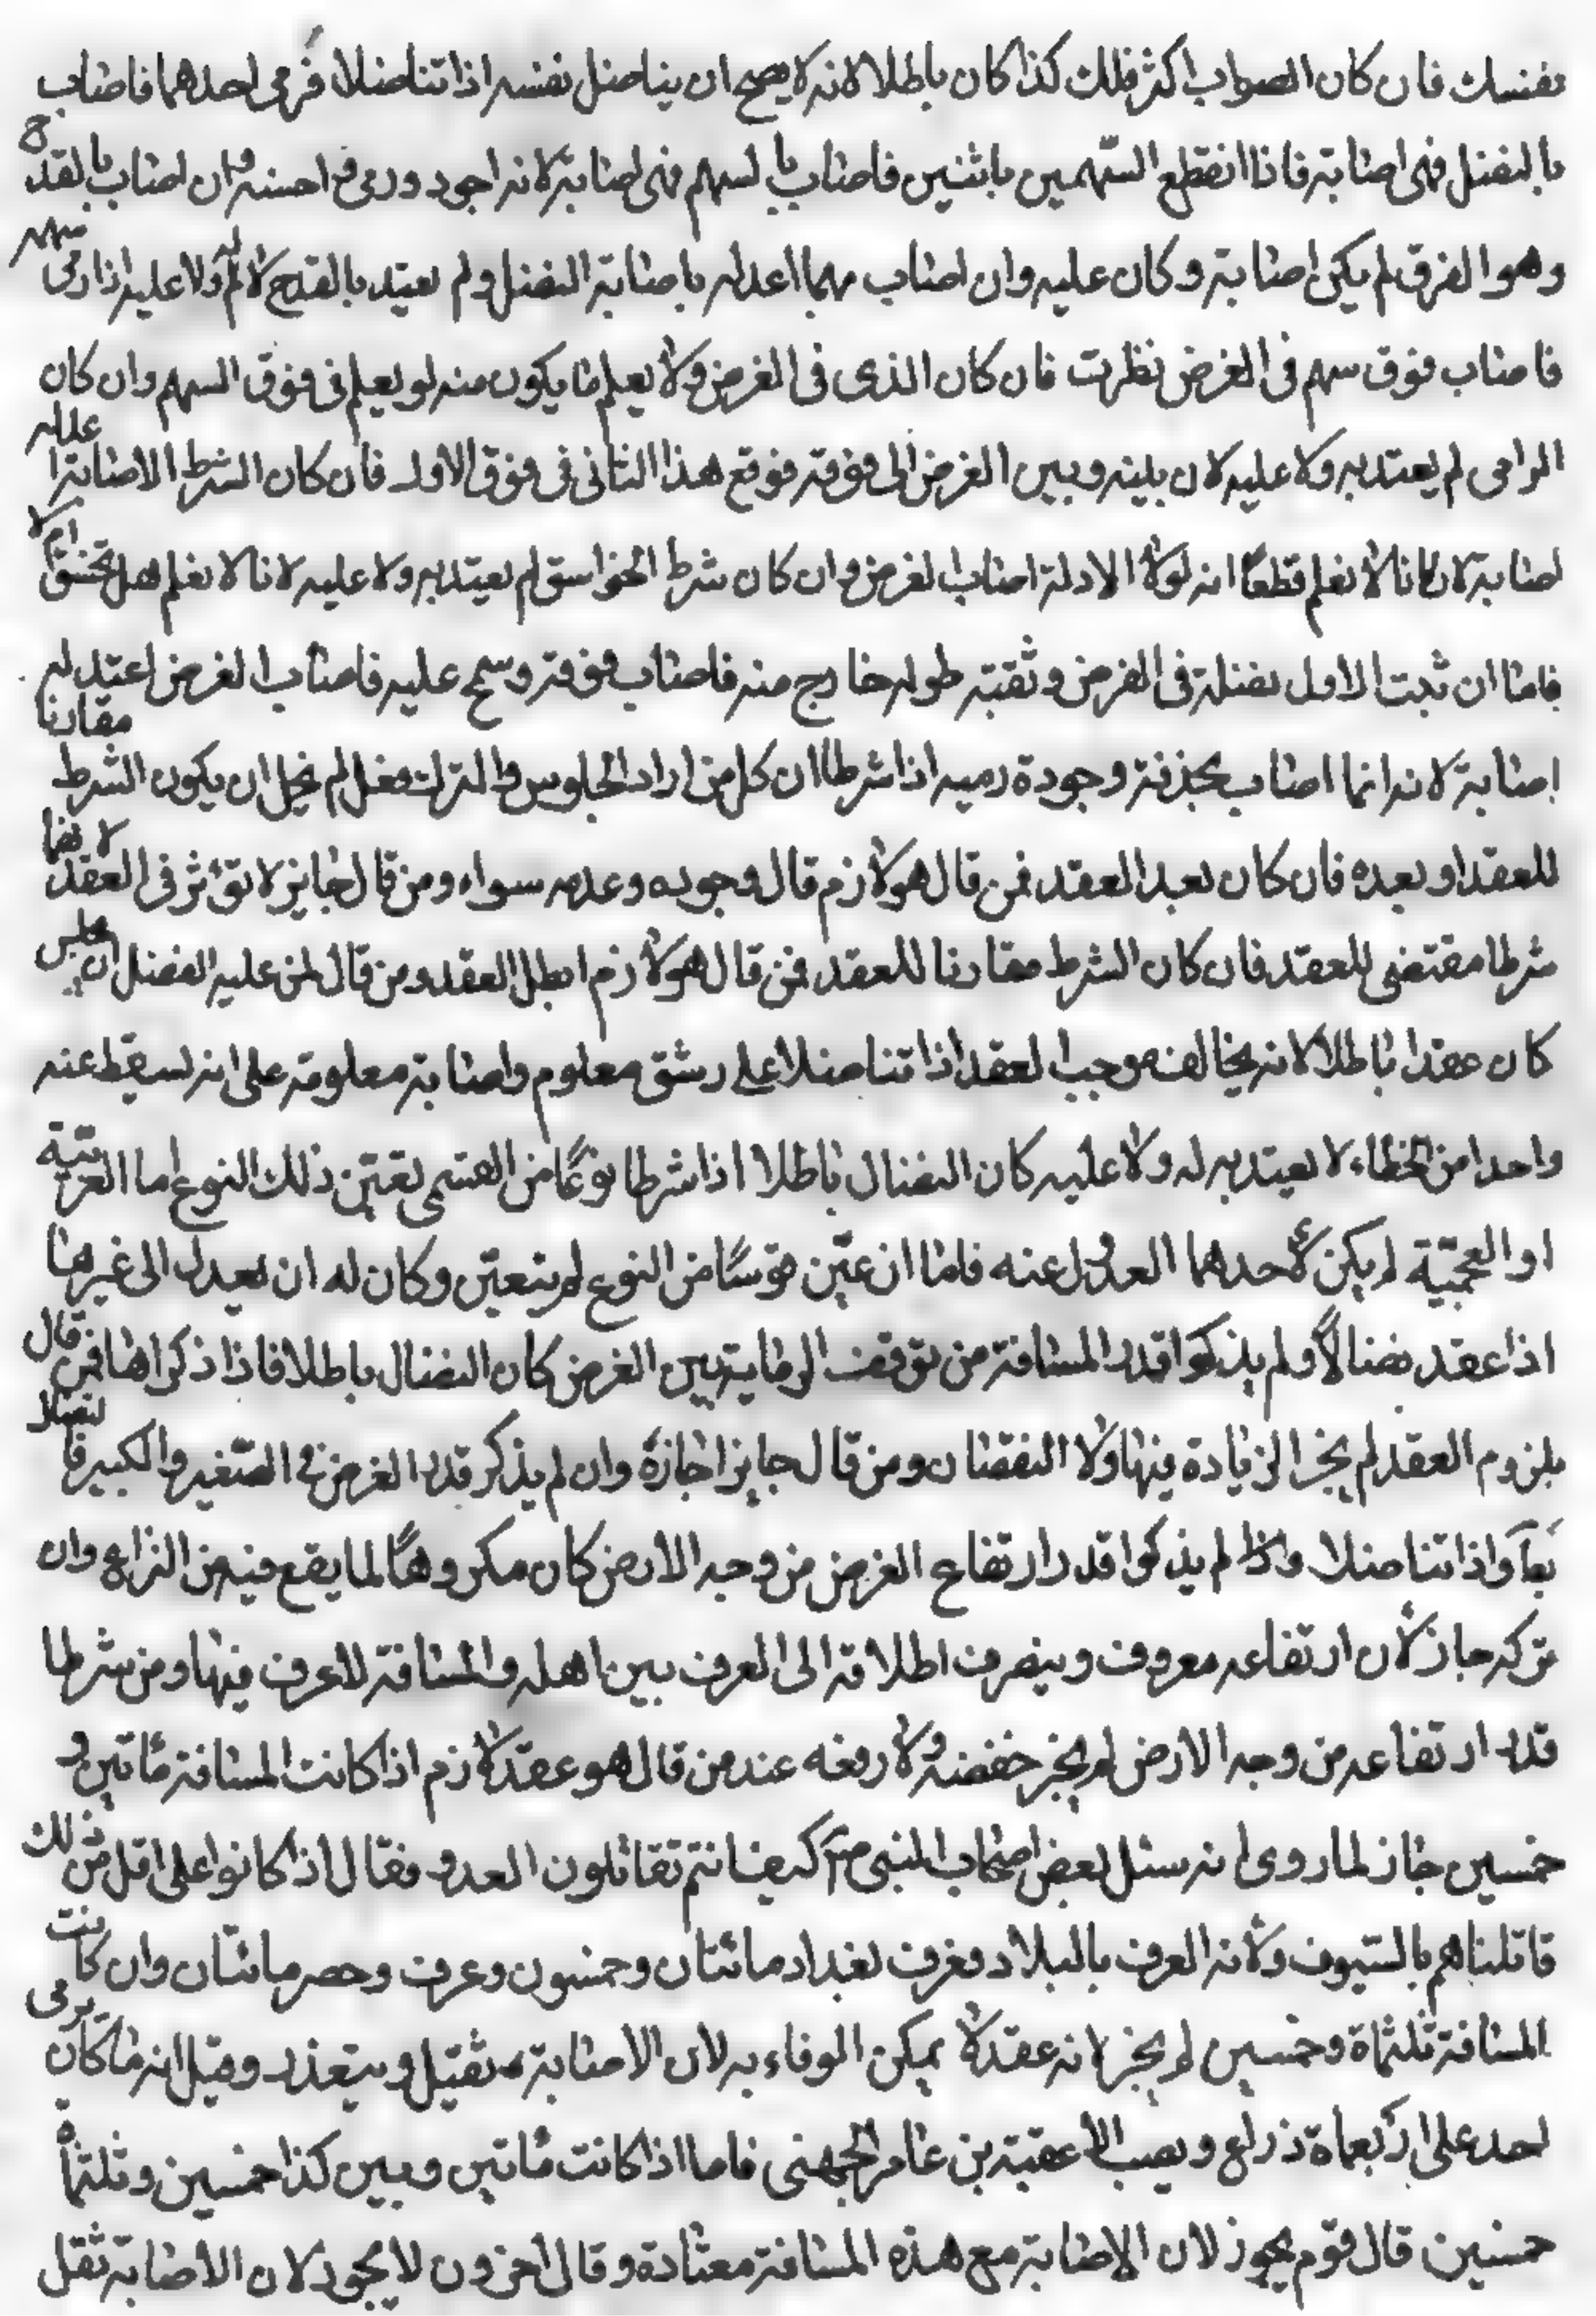 نفسك فان كان الصواب اكثر فلك كذا كان باطلا لانه لا يصح ان يناضل نفسه اذا تناضلا فرمى احدهما فاصاب
بالنضل فهى اصابة فاذا انقطع السهمين باثنين فاصاب بالسهم فهى اصابة لانه اجود ورمى احسنه وان اصاب بالقدح
وهو الفرق لم يكن اصابة وكان عليه وان اصاب بهما اعد له باصابة النضل ولم يعتد بالقدح لا له ولا عليه اذا رمى سهم
فاصاب فوق سهم فى الغرض نظرت فان كان الذى فى الغرض ولا يعلم ما يكون منه لو يعلم فى فوق السهم وان كان
الرامى لم يعتد به ولا عليه لان بينه وبين الغرض الى فوقه فوقع هذا الثانى فى فوق الاول فان كان الشرط الاصابة اعد له
اصابة لانا لا نعلم قطعا انه لولا الاول اصاب الغرض وان كان شرط الخواسق لم يعتد به ولا عليه لانا لا نعلم هل تخسق ام لا
فاما ان ثبت الاول بنضله فى الغرض وثقبته طوله خارج منه فاصاب فوقه وسمح عليه فاصاب الغرض اعتد له
اصابة لانه انما اصاب بحذفه وجودة رميه اذا شرطا ان كل من اراد الجلوس والترك فعل لم يخل ان يكون الشرط مقارنا
للعقد او بعده فان كان بعد العقد فمن قال هو لازم قال وجوده وعدمه سواء ومن قال جايز لا تؤثر فى العقد لانها
شرطا مقتضى للعقد فان كان الشرط مقارنا للعقد فمن قال هو لازم ابطل العقد ومن قال لمن عليه الفضل ان يجلس
كان عقدا باطلا لانه يخالف موجب العقد اذا تناضلا على رشق معلوم واصابة معلومة على انه يسقط عنه
واحدا من الخطاء لا يعتد به له ولا عليه كان النضال باطلا اذا شرطا نوعا من القسى تعين ذلك النوع اما العربية
او العجمية لم يكن لاحدهما العدول عنه فاما ان عين قوسا من النوع لم يتعين وكان له ان يعدل الى غيرها
اذا عقد نضالا ولم يذكرا قدر المسافة من توقف الرماية بين الغرض كان النضال باطلا فاذا ذكراها فمن قال
بلزوم العقد لم يجز الزيادة فيها ولا النقصان ومن قال جايز اجازه وان لم يذكر قدر الغرض فى الصغير والكبير فالنضال
بحاله واذا تناضلا واذا لم يذكرا قدر ارتفاع الغرض من وجه الارض كان مكروها لما يقع فيه من النزاع وان
تركه جاز لأن ارتفاعه معروف وينصرف اطلاقه الى العرف بين اهله والمسافة لا عرف فيها ومن شرطا
قدر ارتفاعه من وجه الارض لم يجز خفضه ولا رفعه عند من قال هو عقد لازم اذا كانت المسافة ماتين و
خمسين جاز لما روى انه سئل بعض اصحاب النبى ص كيف انتم تقاتلون العدو فقال اذا كانوا على اقل من ذلك
قاتلناهم بالسيوف ولأنه العرف بالبلاد فعرف بغداد مائتان وخمسون وعرف وحصر مائتان وان كانت
المسافة ثلثماة وخمسين لم يجز لانه عقد لا يمكن الوفاء به لان الاصابة تقل ويتعذر وقيل انه ما كان يرمى
احد على اربعماة ذراع ويصيب الا عقبة بن عامر الجهنى فاما اذا كانت ماتين وبين كذا خمسين وثلثماة
خمسين قال قوم يجوز لان الاصابة مع هذه المسافة معتادة وقال اخرون لا يجوز لان الاصابة تقل